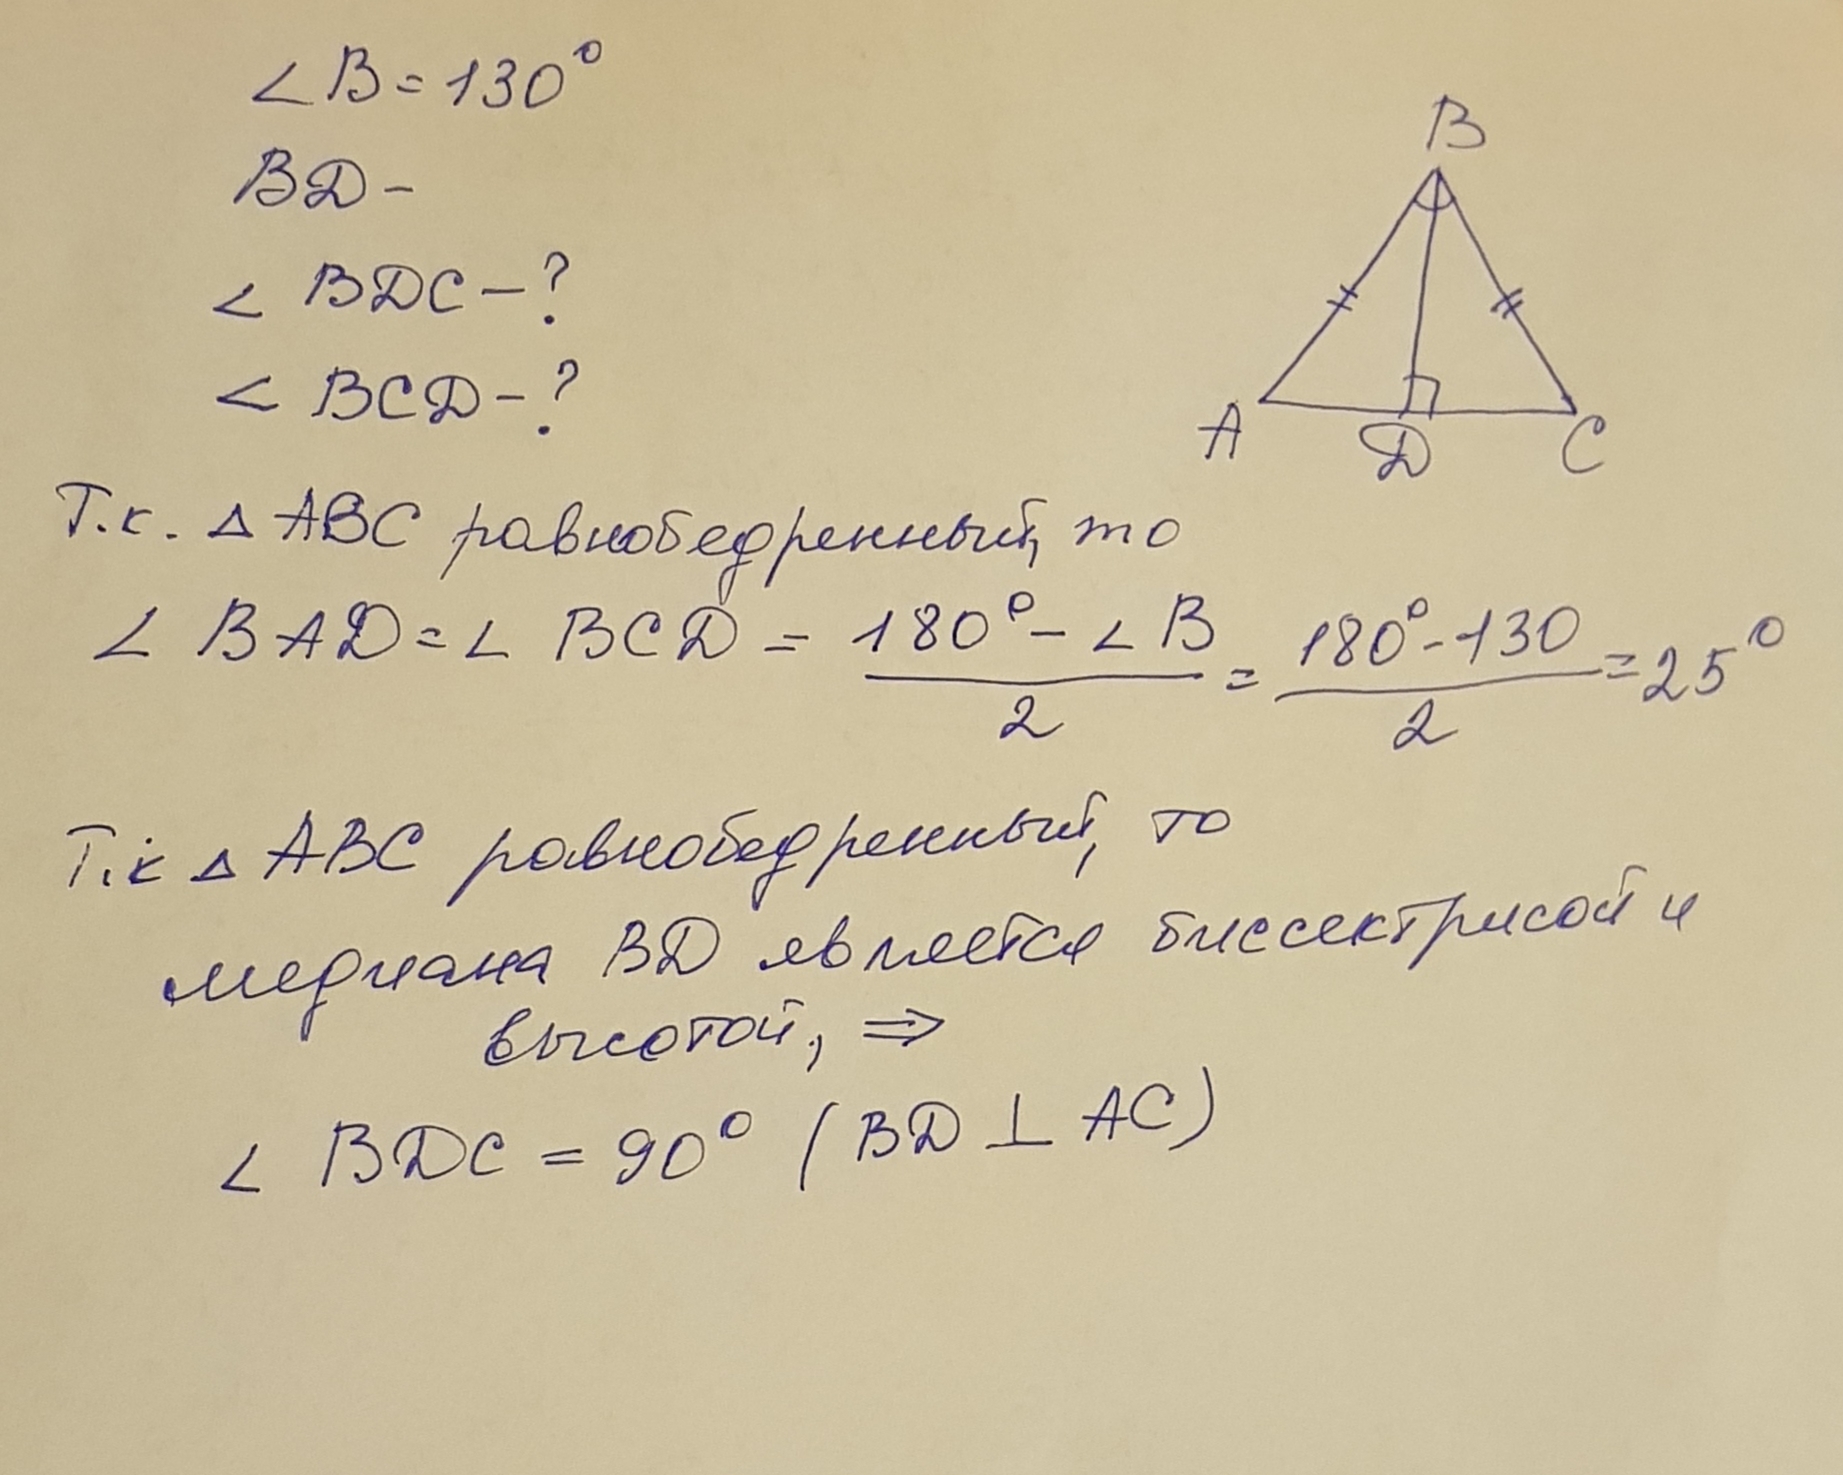 ∠ B = 130°
BD -
∠ BDC - ?
∠ BCD - ?
B
A D C
Т.к. △ ABC равнобедренный, то
∠ BAD = ∠ BCD = (180° - ∠ B)/2 = (180° - 130)/2 = 25°
Т.к △ ABC равнобедренный, то
медиана BD является биссектрисой и
высотой, ⇒
∠ BDC = 90° (BD ⊥ AC)